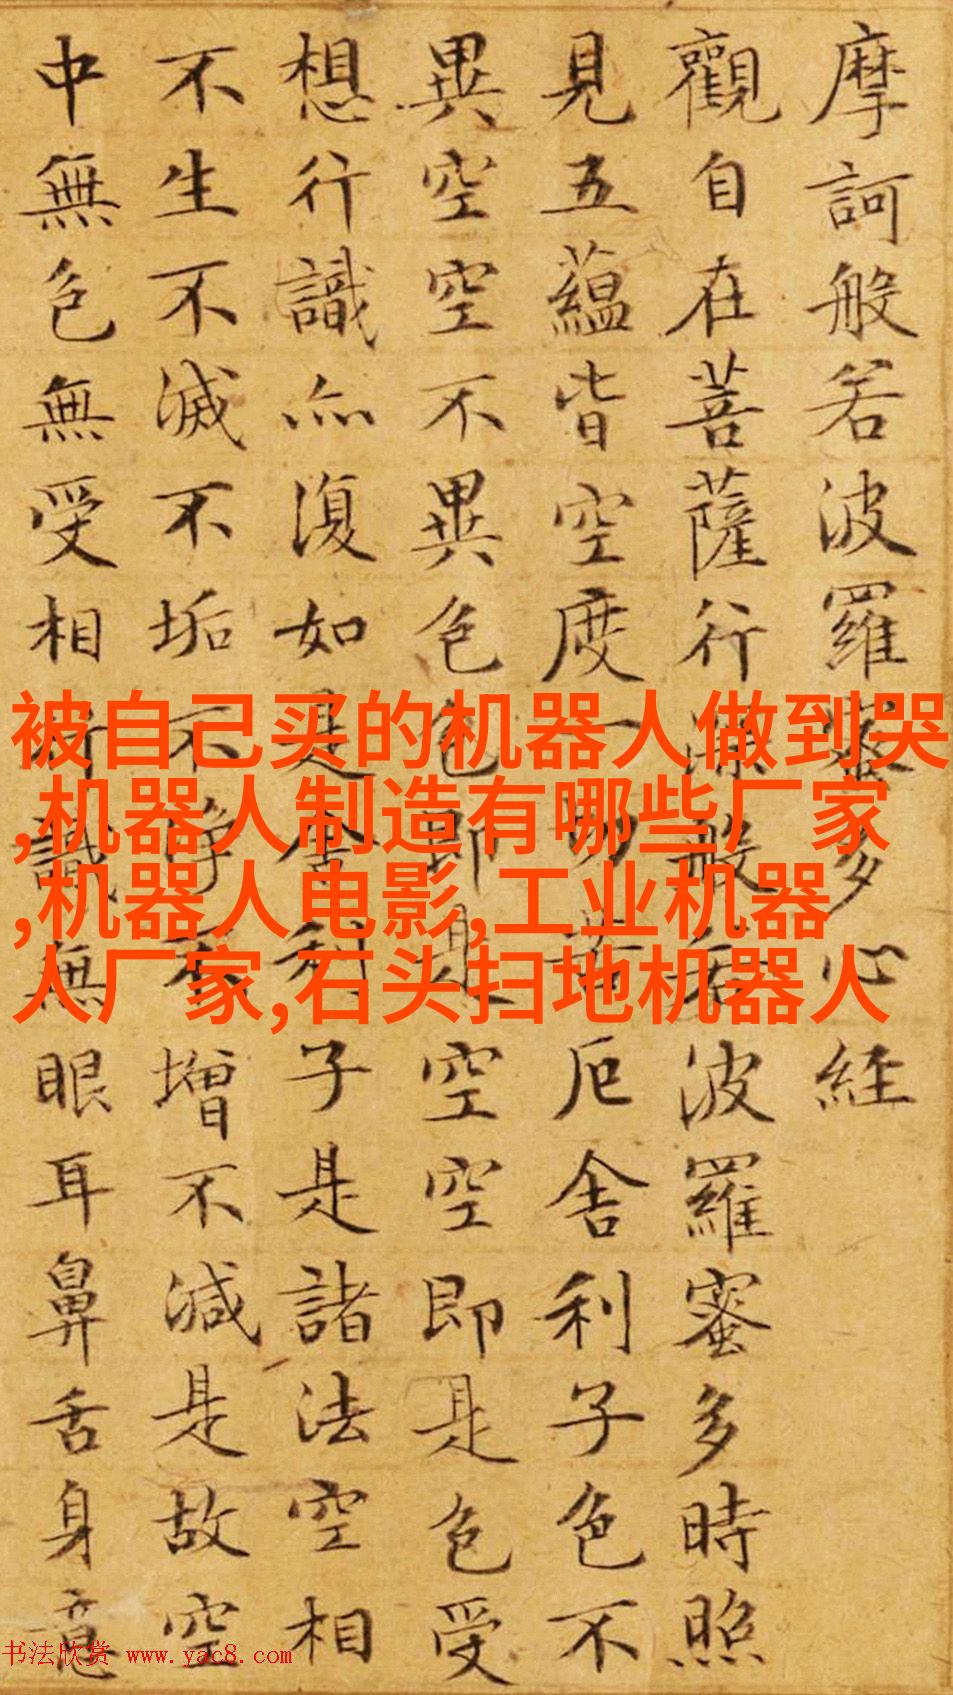 摩訶般若波羅蜜多心經
觀自在菩薩行深般若波羅蜜多時照
見五蘊皆空度一切苦厄舍利子色不
異空空不異色色即是空空即是色受
想行識亦復如是舍利子是諸法空相
不生不滅不垢不淨不增不減是故空
中無色無受相行識無眼耳鼻舌身意
被自己买的机器人做到哭
,机器人制造有哪些厂家
,机器人电影,工业机器
人厂家,石头扫地机器人
书法欣赏 www.yac8.com